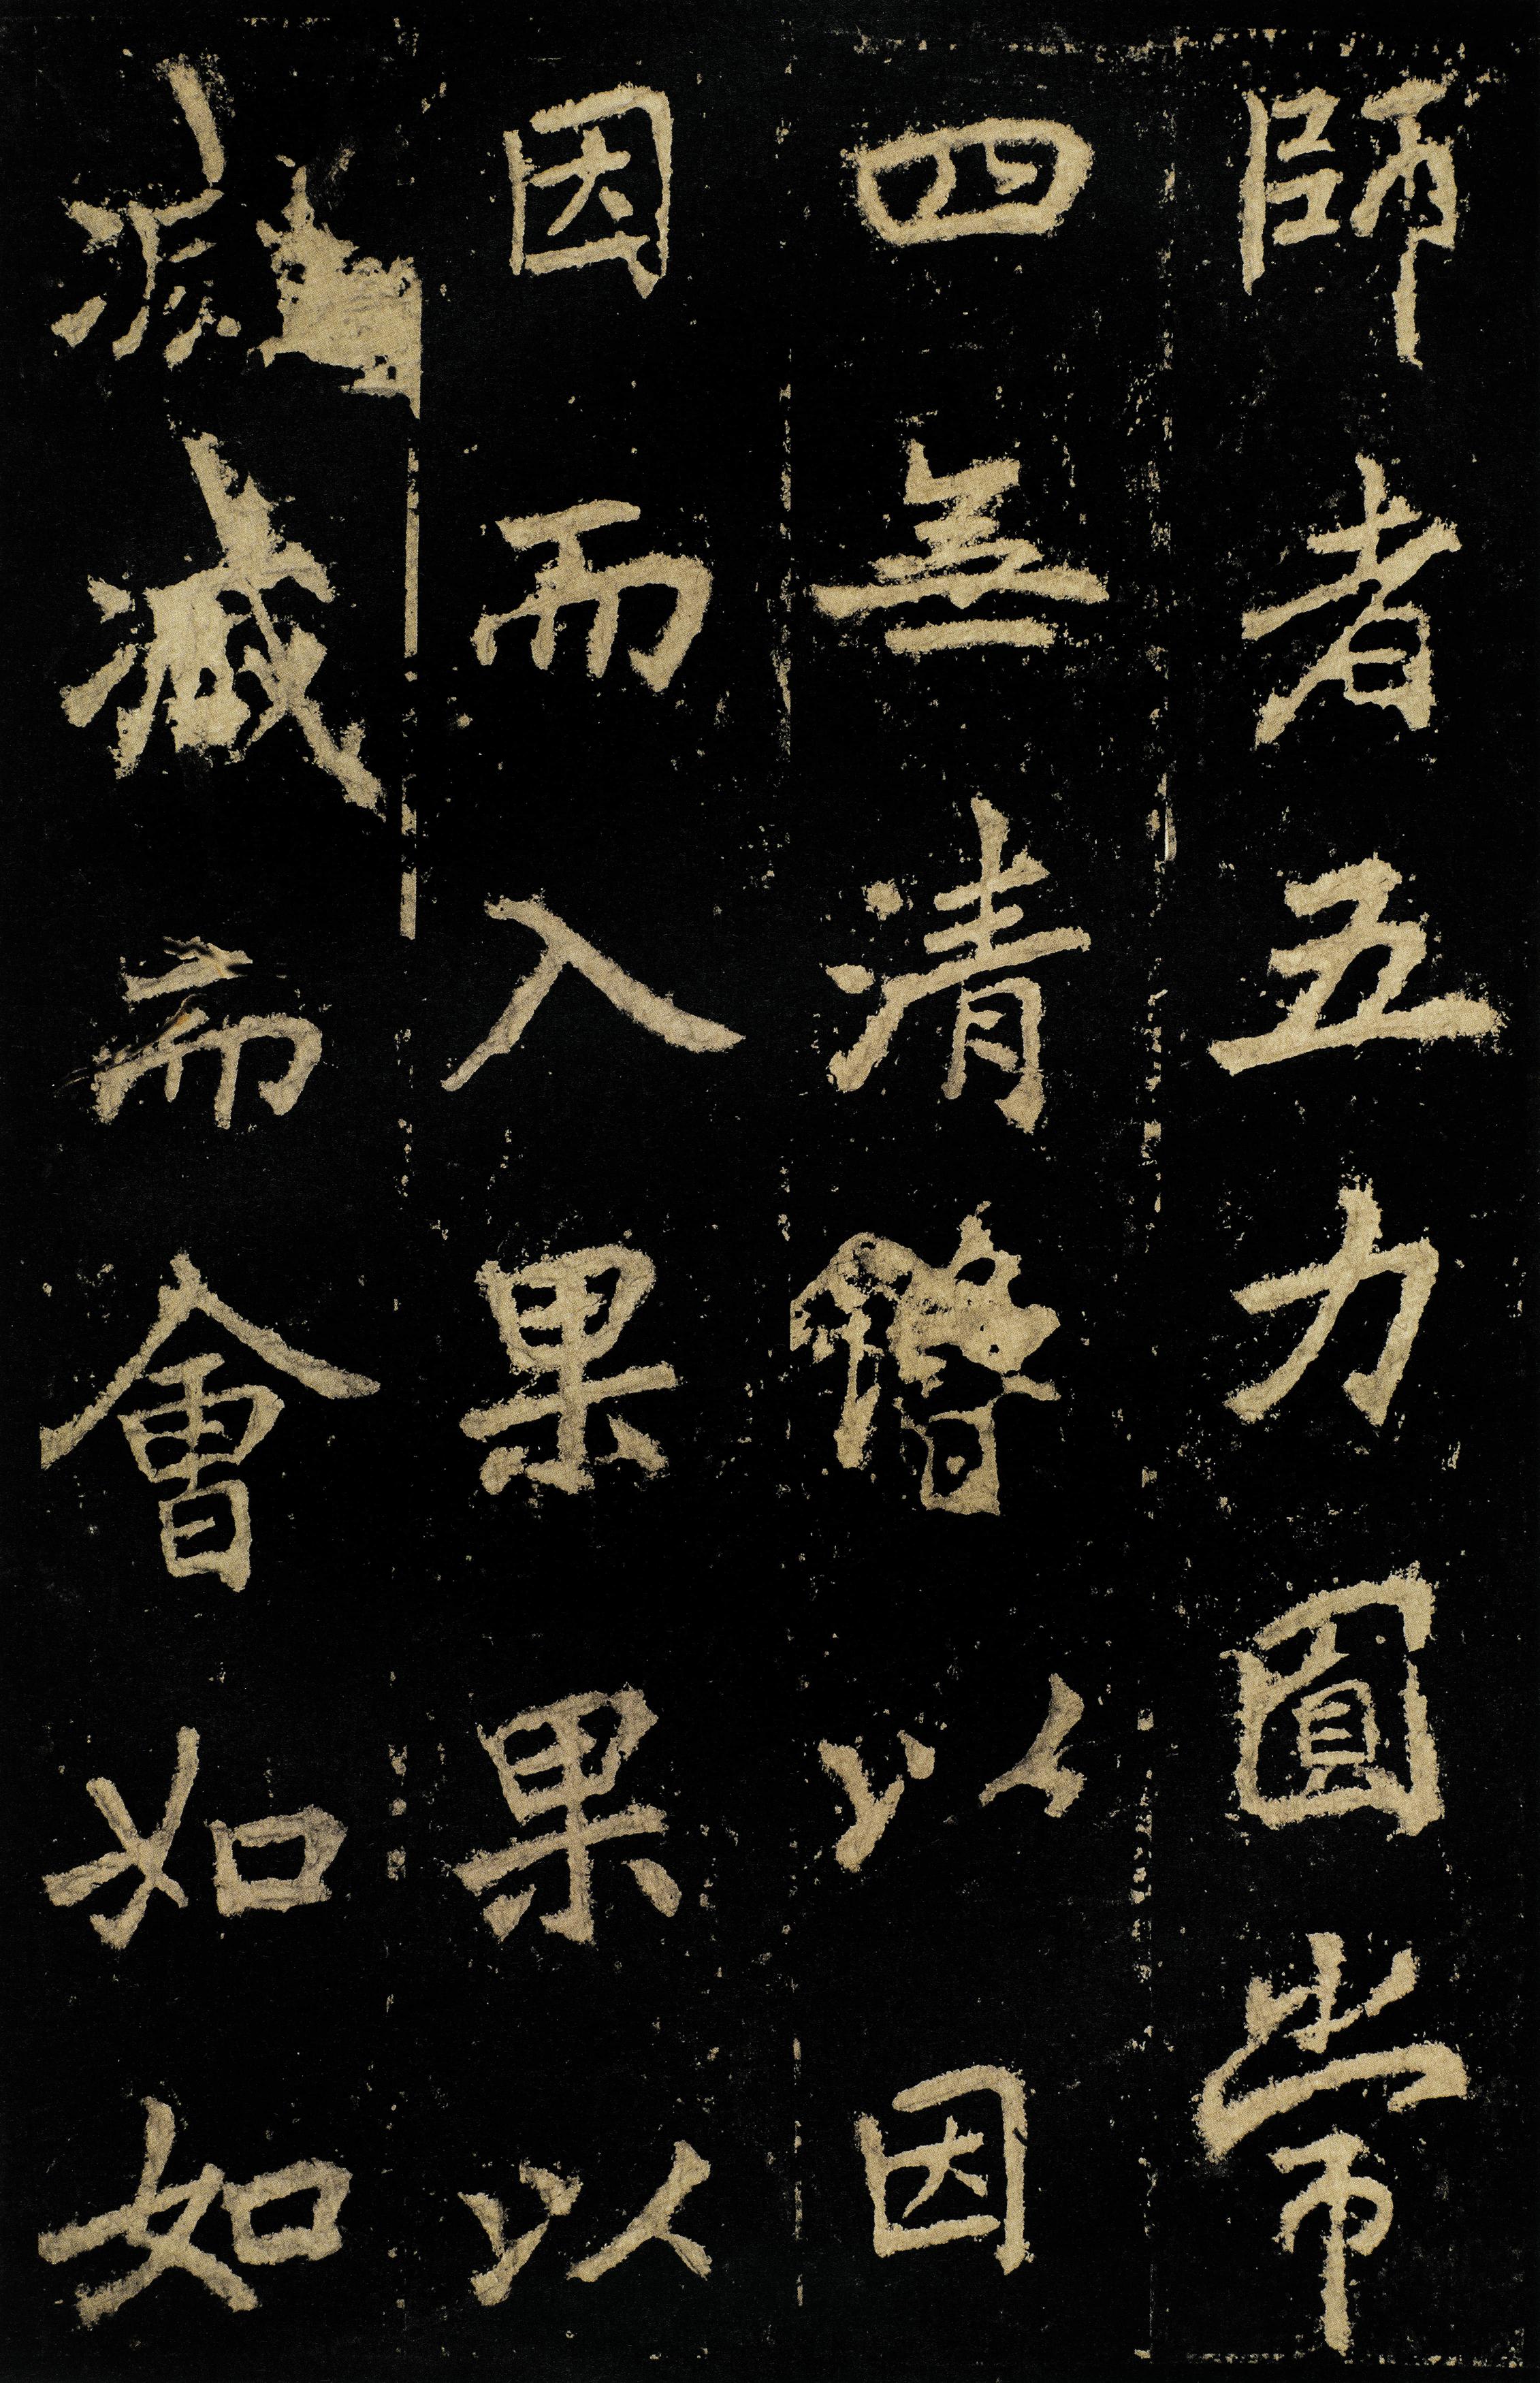 師者五力圓常
四無清以因
因而入果果以
滅滅而會如如